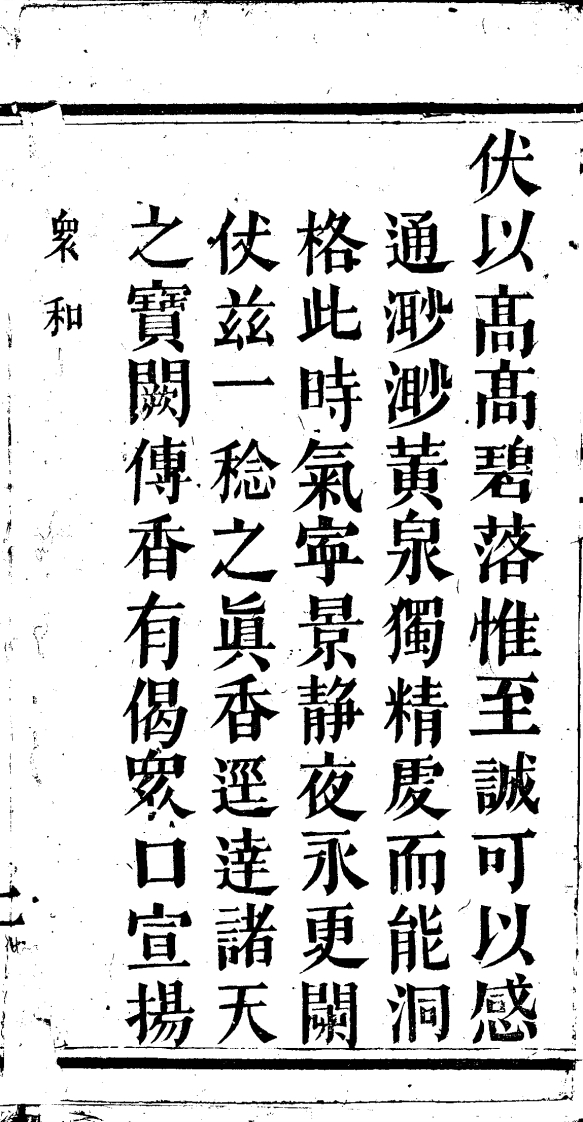 伏以髙髙碧落惟至誠可以感
通渺渺黃泉獨精虔而能洞
格此時氣寧景静夜永更闌
仗兹一稔之眞香逕達諸天
之寶闕傳香有偈眾口宣揚
眾和